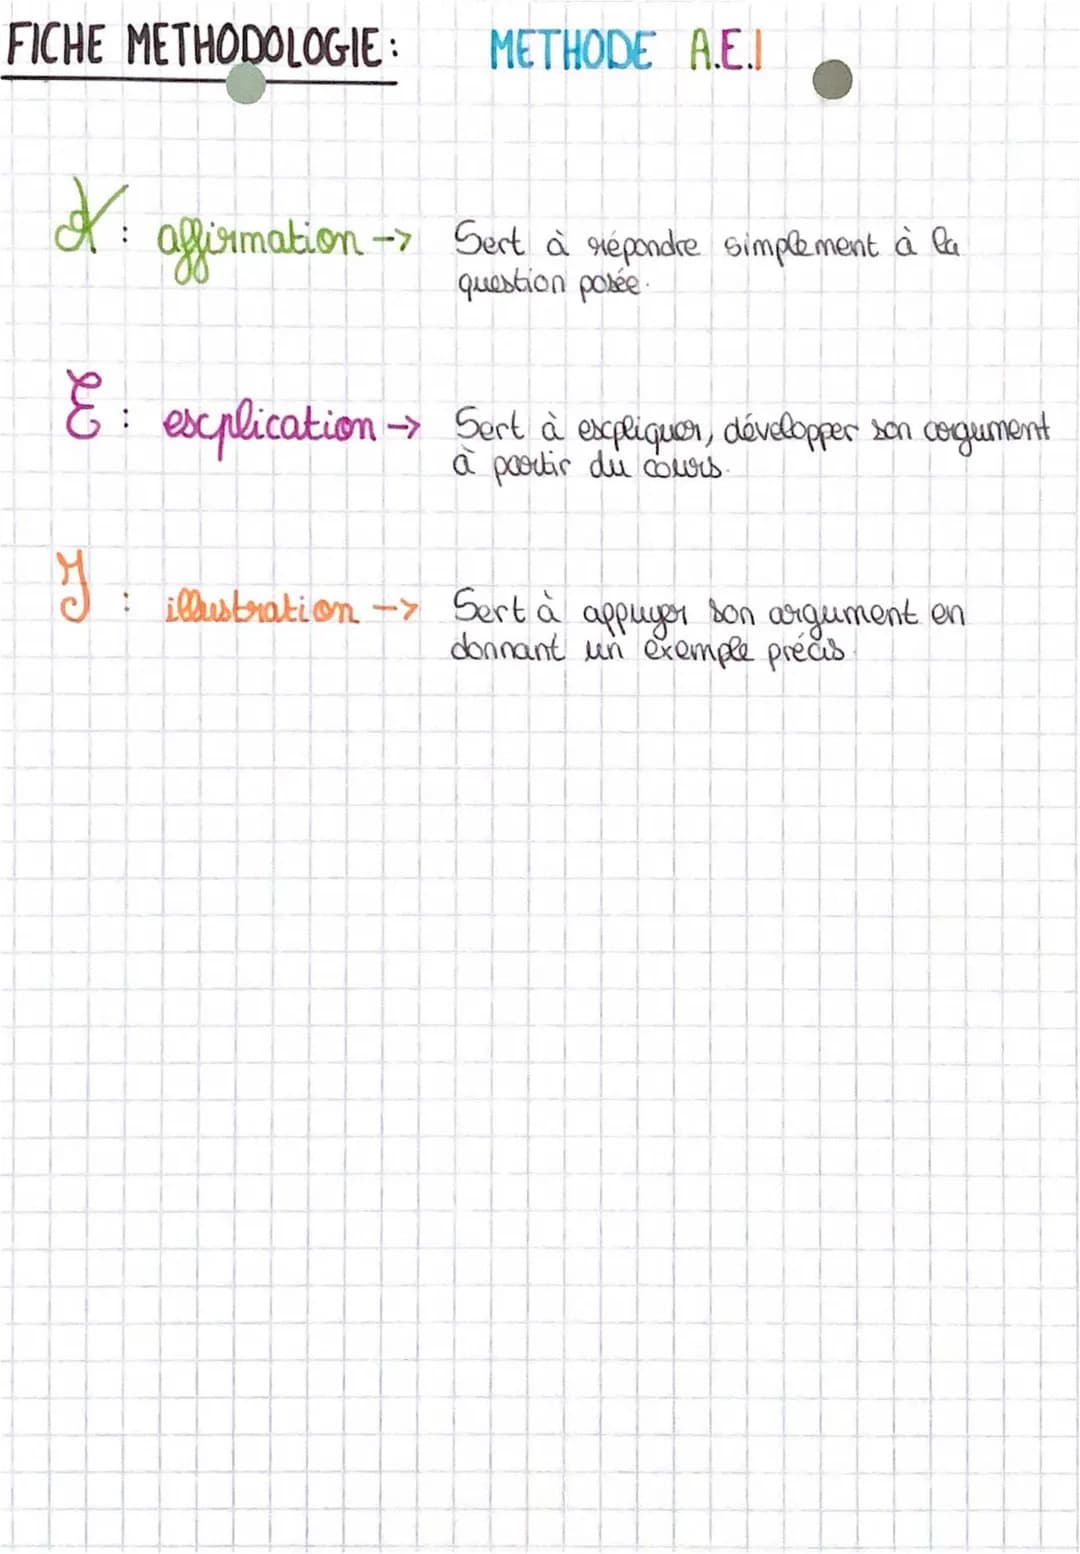 FICHE METHODOLOGIE: METHODE A.E.I
A : affirmation -> Sert à répondre simplement à la
question posée.
E : explication -> Sert à expliquer, développer son argument
à partir du cours.
I : illustration -> Sert à appuyer son argument en
donnant un exemple précis.